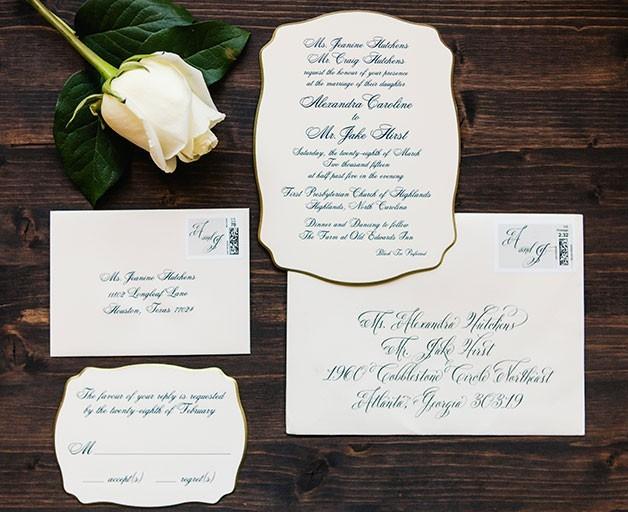 Ms. Jeanine Hutchens
Mr. Craig Hutchens
request the honour of your presence
at the marriage of their daughter
Alexandra Caroline
to
Mr. Jake Hirst
Saturday, the twenty-eighth of March
Two thousand fifteen
at half past five in the evening
First Presbyterian Church of Highlands
Highlands, North Carolina
Dinner and Dancing to follow
The Farm at Old Edwards Inn
Black Tie Preferred
A and J
Ms. Jeanine Hutchens
11102 Longleaf Lane
Houston, Texas 77024
A and J
Ms. Alexandra Hutchens
Mr. Jake Hirst
1960 Cobblestone Circle Northeast
Atlanta, Georgia 30319
The favour of your reply is requested
by the twenty-eighth of February
M
accept(s) regret(s)